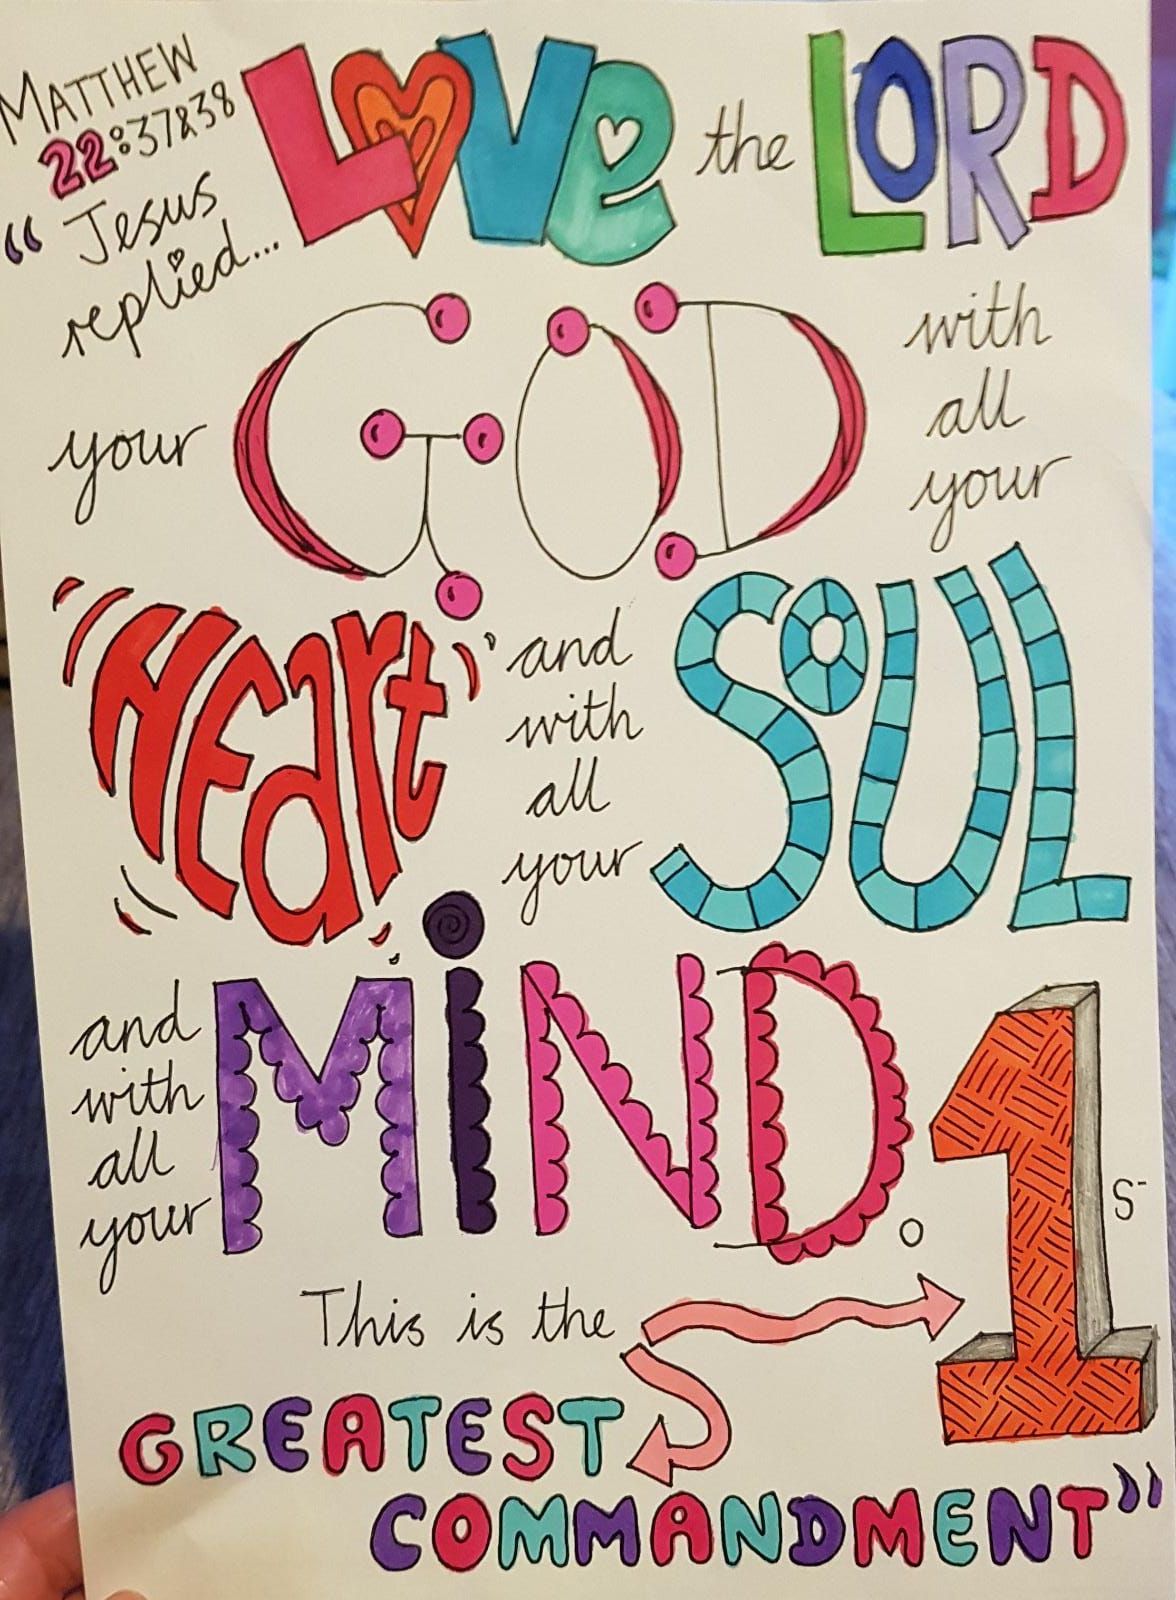 MATTHEW
22:37&38
"Jesus
replied...
LOVe the LORD
your GOD with
all
your
HEart and
with
all
your SOUL
and
with
all
your MiND. 1
S-
This is the
GREATEST
COMMANDMENT"